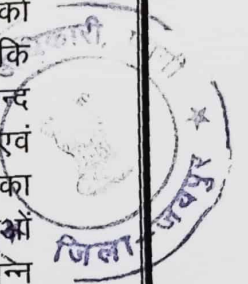 को
कि
न्द
एवं
का
ओं
ने
जिला जयपुर